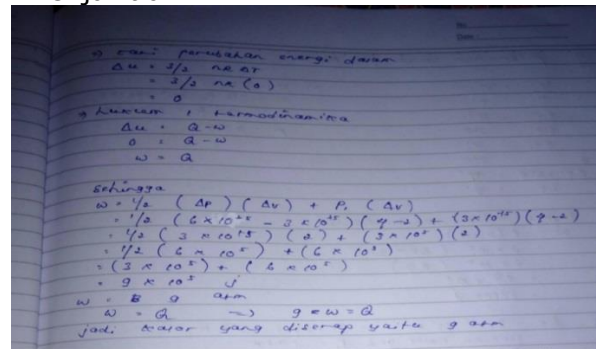 No.
Date
→ cari perubahan energi dalam
Δu = 3/2 nR ΔT
= 3/2 nR (0)
= 0
→ hukum 1 termodinamika
Δu = Q - w
0 = Q - w
w = Q
Sehingga
w = 1/2 (Δp) (Δv) + P1 (Δv)
= 1/2 (6 × 10^5 - 3 × 10^5) (4 - 2) + (3 × 10^5) (4 - 2)
= 1/2 (3 × 10^5) (2) + (3 × 10^5) (2)
= 1/2 (6 × 10^5) + (6 × 10^5)
= (3 × 10^5) + (6 × 10^5)
= 9 × 10^5 j
w = 9 atm
w = Q → 9 = w = Q
jadi kalor yang diserap yaitu 9 atm